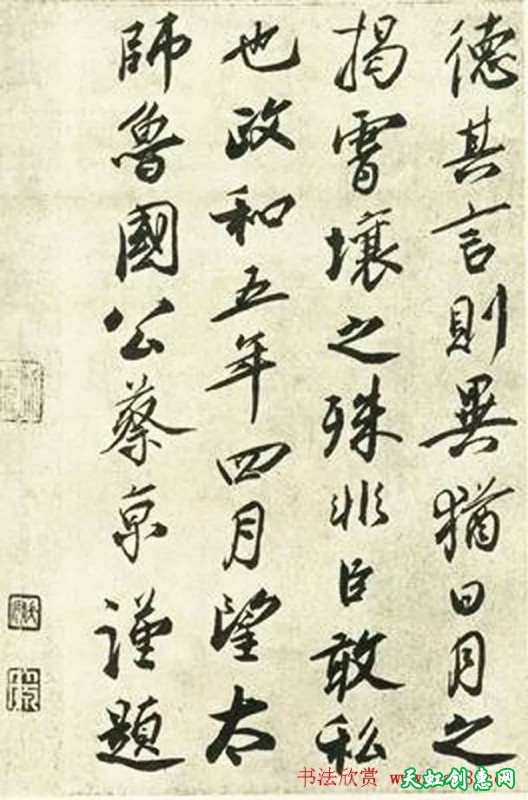 德其言則異猶日月之
揭霄壤之殊非臣敢私
也政和五年四月望太
師魯國公蔡京謹題
书法欣赏
天虹创惠网